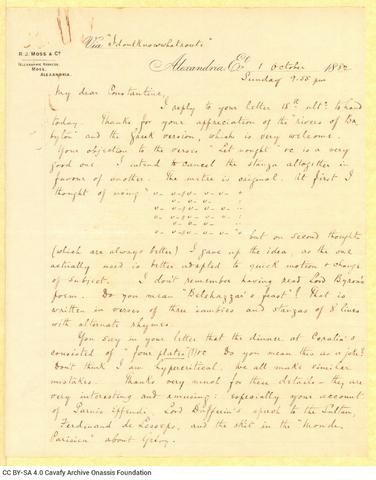 Via "Idontknowwhatroute"
R. J. MOSS & Co
TELEGRAPHIC ADDRESS:
MOSS,
ALEXANDRIA.
Alexandria, Eg. 1 October 1882
Sunday 9.55 pm
My dear Constantine,
I reply to your letter 18th ulto to hand
today. Thanks for your appreciation of the "rivers of Ba-
bylon" and the Greek version, which is very welcome.
Your objection to the verses "Let nought" &c is a very
good one. I intend to cancel the stanza altogether in
favour of another. The metre is original. At first I
thought of using "
but on second thoughts
(which are always better) I gave up the idea, as the one
actually used is better adapted to quick motion & change
of subject. I don't remember having read Lord Byron's
poem. Do you mean "Belshazzar's feast"? That is
written in verses of three iambics and stanzas of 8 lines
with alternate rhymes.
You say in your letter that the dinner at Coralia's
consisted of "four plates"(!) &c Do you mean this as a joke?
Don't think I am hypercritical. We all make similar
mistakes. Thanks very much for these details – they are
very interesting and amusing: especially your account
of Parnis effendi, Lord Dufferin's speech to the Sultan,
Ferdinand de Lesseps, and the skit in the "Monde
Parisien" about Grévy.
CC BY-SA 4.0 Cavafy Archive Onassis Foundation